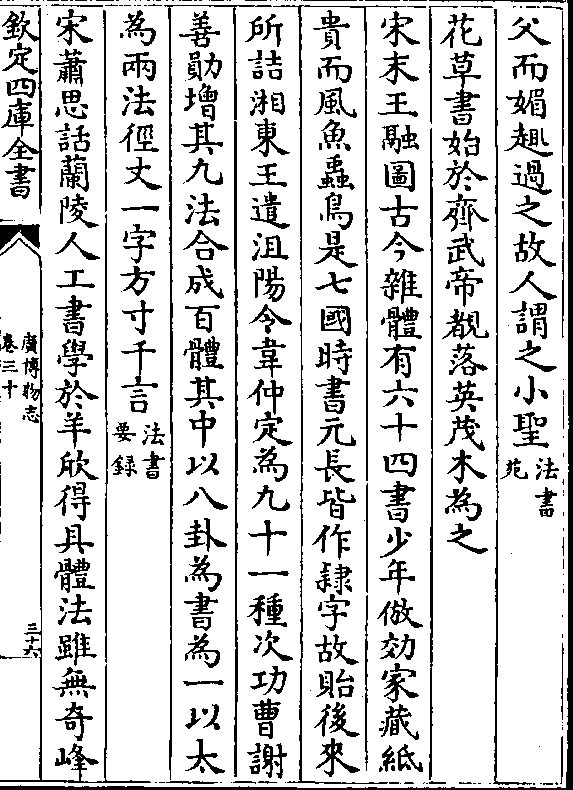 父而媚趣過之故人謂之小聖法書苑
花草書始於齊武帝覩落英茂木為之
宋末王融圖古今雜體有六十四書少年倣効家藏紙
貴而風魚蟲鳥是七國時書元長皆作隸字故貽後來
所詰湘東王遣沮陽令韋仲定為九十一種次功曹謝
善勛增其九法合成百體其中以八卦為書為一以太
為兩法徑丈一字方寸千言法書要録
宋蕭思話蘭陵人工書學於羊欣得具體法雖無奇峰
欽定四庫全書
廣博物志
卷三十
三十六